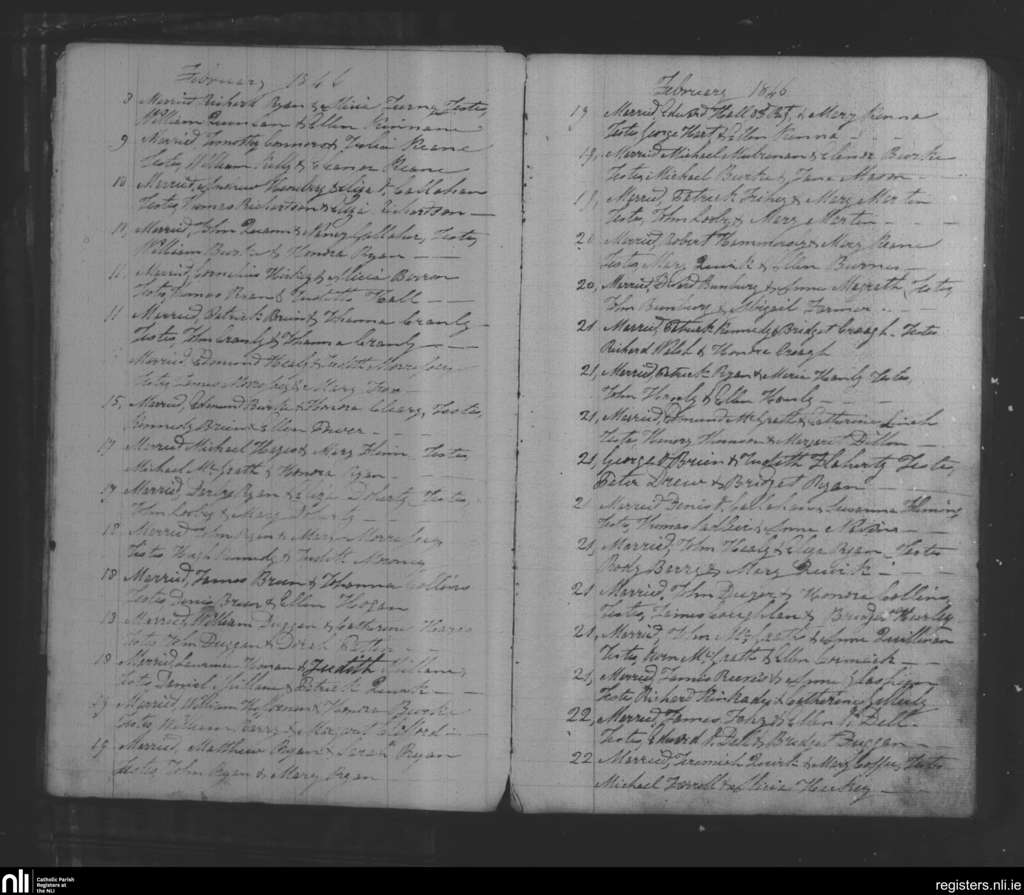 February 1846
8 Married Richard Ryan & Alicia Testes,
William & Ellen Kinnane
9 Married, Timothy Connors & Keane
Testes, William Kelly & Eleanor Keane
10 Married, Andrew & Eliza O Callahan
Testes, James Richertson & Eliza Richertson
10, Married, John & Nancy Gallaher, Testes,
William Burke & Honora Ryan
11 Married, Cornelius Hickey & Alicia Barron
Testes, Thomas Ryan & Judith Hall
11 Married, Patrick Brien & Johanna Cranly
Testes, John Cranly & Johanna Cranly
Married, Edmund Healy & Judith
Testes, James & Mary Fox
15, Married, Edmund Burke & Honora Cleary, Testes,
Kennedy Brien & Ellen
17 Married Michael Hayes & Mary Testes,
Michael McGrath & Honora Ryan
17 Married, Darby Ryan & Eliza Testes,
John Looby & Mary
18 Married John Ryan & Mary
Testes Hugh Kennedy & Judith
18 Married, James Brien & Johanna Collins
Testes, Denis Brien & Ellen Hogan
Married, William Duggan & Catherine Hayes
Testes, John Duggan &
18 Married Laurence & Judith
Testes, Daniel & Patrick Quirk
19 Married, William Heffernan & Honora
Testes, William & Margaret
19 Married, Matthew Ryan & Sarah Ryan
Testes, John Ryan & Mary Ryan
February 1846
19 Married, Edward Hall & Mary Kenna
Testes, George Hart & Ellen Kenna
19, Married, Michael & Elenor Burke
Testes, Michael Burke & Jane Mason
19, Married, Patrick Fisher & Mary Martin
Testes, John Looby & Mary Martin
20 Married, Robert & Mary Keane
Testes, Mary Quirk & Ellen Burnes
20, Married, David Bunbury & Anne Magrath, Testes,
John Bunbury & Abigail Farmer
21 Married, Patrick Kennedy & Bridget Creagh. Testes
Richard Walsh & Honora Creagh
21, Married, Patrick Ryan & Maria Hanly Testes,
John Hanly & Ellen Hanly
21, Married, Edmund McGrath & Catherine
Testes, Henry & Margaret Dillon
21, George O Brien & Judith Flaherty Testes,
Peter Drew & Bridget Ryan
2 Married Denis O Callahan & Susanna Fleming
Testes, Thomas & Anne
21, Married, John Healy & Eliza Ryan Testes
Rody Berry & Mary Quirk
21 Married, John Dwyer & Honora Collins
Testes, James Coughlan & Bridget Hurley
21 Married, John McGrath & Anne Quillinan
Testes, McGrath & Ellen Cormick
21, Married, James & Anne Glasheen
Testes, Richard & Catherine
22, Married, James Fahy & Ellen O Dell
Testes, Edward O Dell & Bridget Duggan
22 Married, Jeremiah Quirk & Mary Testes
Michael Farrell & Alicia Hickey
nli
Catholic Parish
Registers at
the NLI
registers.nli.ie